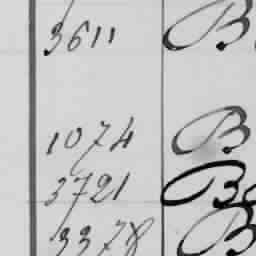 3611 B
1074 B
3721 Bo
3378 B